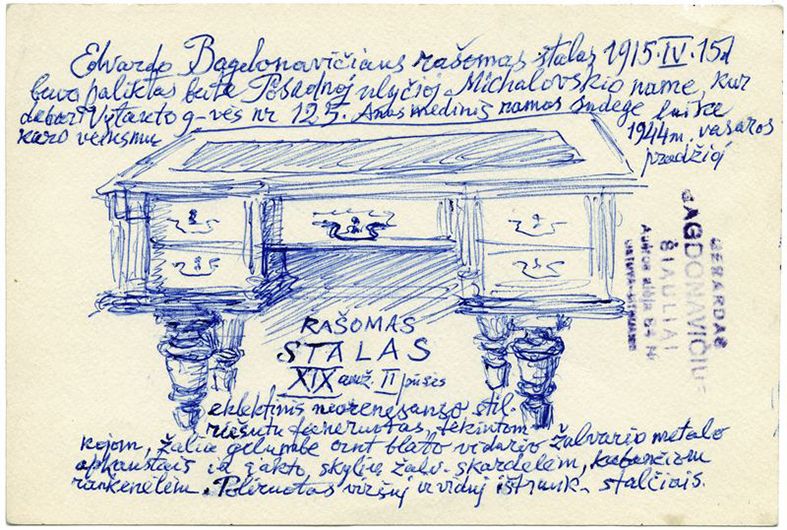 Edvardo Bagdonavičiaus rašomas stalas 1915.IV.15d
buvo paliktas bute Posadnoj ulyčioj Michalovskio name, kur
dabar Vytauto g-vės nr 125. Anas medinis namas sudegė laike
karo veiksmų 1944m. vasaros
pradžioj
GERARDAS
BAGDONAVIČIUS
ŠIAULIAI
Aušros alėja 84 Nr
RAŠOMAS
STALAS
XIX amž. II pusės
eklektinis neorenesanso stil.
riešutu feneruotas, tekintom
kojom, žalia gelumbe ant blato vidurio žalvario metalo
apkaustais ir rakto skylių žalv. skardelėm, kabančiom
rankenėlėm. Poliruotas viršuj ir viduj ištrauk. stalčiais.